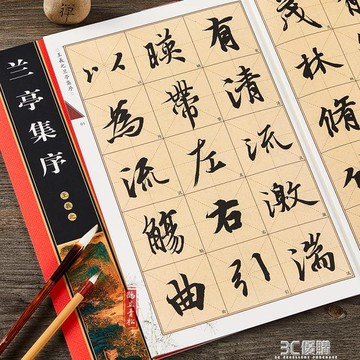 兰亭集序
王羲之
王羲之兰亭集序
茂林脩
有清流激湍
暎帶左右引
以為流觴曲
3C優購